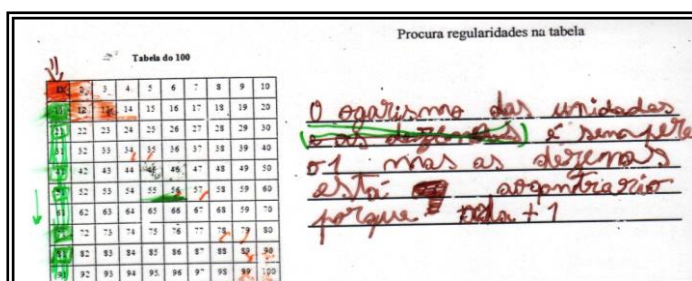 Procura regularidades na tabela
Tabela do 100
1 2 3 4 5 6 7 8 9 10
11 12 13 14 15 16 17 18 19 20
21 22 23 24 25 26 27 28 29 30
31 32 33 34 35 36 37 38 39 40
41 42 43 44 45 46 47 48 49 50
51 52 53 54 55 56 57 58 59 60
61 62 63 64 65 66 67 68 69 70
71 72 73 74 75 76 77 78 79 80
81 82 83 84 85 86 87 88 89 90
91 92 93 94 95 96 97 98 99 100
O ogarismo das unidades
e as dezemas é sempre
o 1 mas as dezemas
está aocontrario
porque + 1